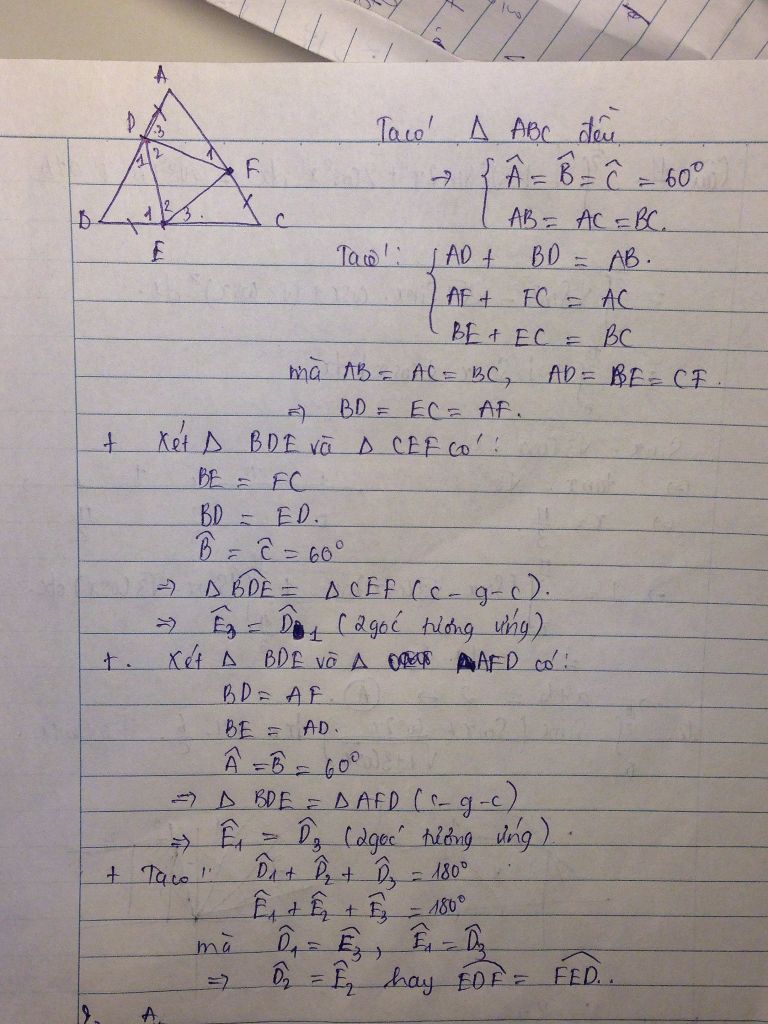 A
D 3
1 2 1 F
B 1 2 3 C
E
Ta có Δ ABC đều
→ { Â = B̂ = Ĉ = 60°
AB = AC = BC.
Ta có: { AD + BD = AB.
AF + FC = AC
BE + EC = BC
mà AB = AC = BC, AD = BE = CF.
⇒ BD = EC = AF.
+ Xét Δ BDE và Δ CEF có:
BE = FC
BD = ED.
B̂ = Ĉ = 60°
⇒ Δ BDE = Δ CEF (c-g-c).
⇒ Ê3 = D̂1 (2 góc tương ứng)
+. Xét Δ BDE và Δ AFD có:
BD = AF.
BE = AD.
Â = B̂ = 60°
⇒ Δ BDE = Δ AFD (c-g-c)
⇒ Ê1 = D̂3 (2 góc tương ứng).
+ Ta có: D̂1 + D̂2 + D̂3 = 180°
Ê1 + Ê2 + Ê3 = 180°
mà D̂1 = Ê3, Ê1 = D̂3
⇒ D̂2 = Ê2 hay EDF = FED..
A